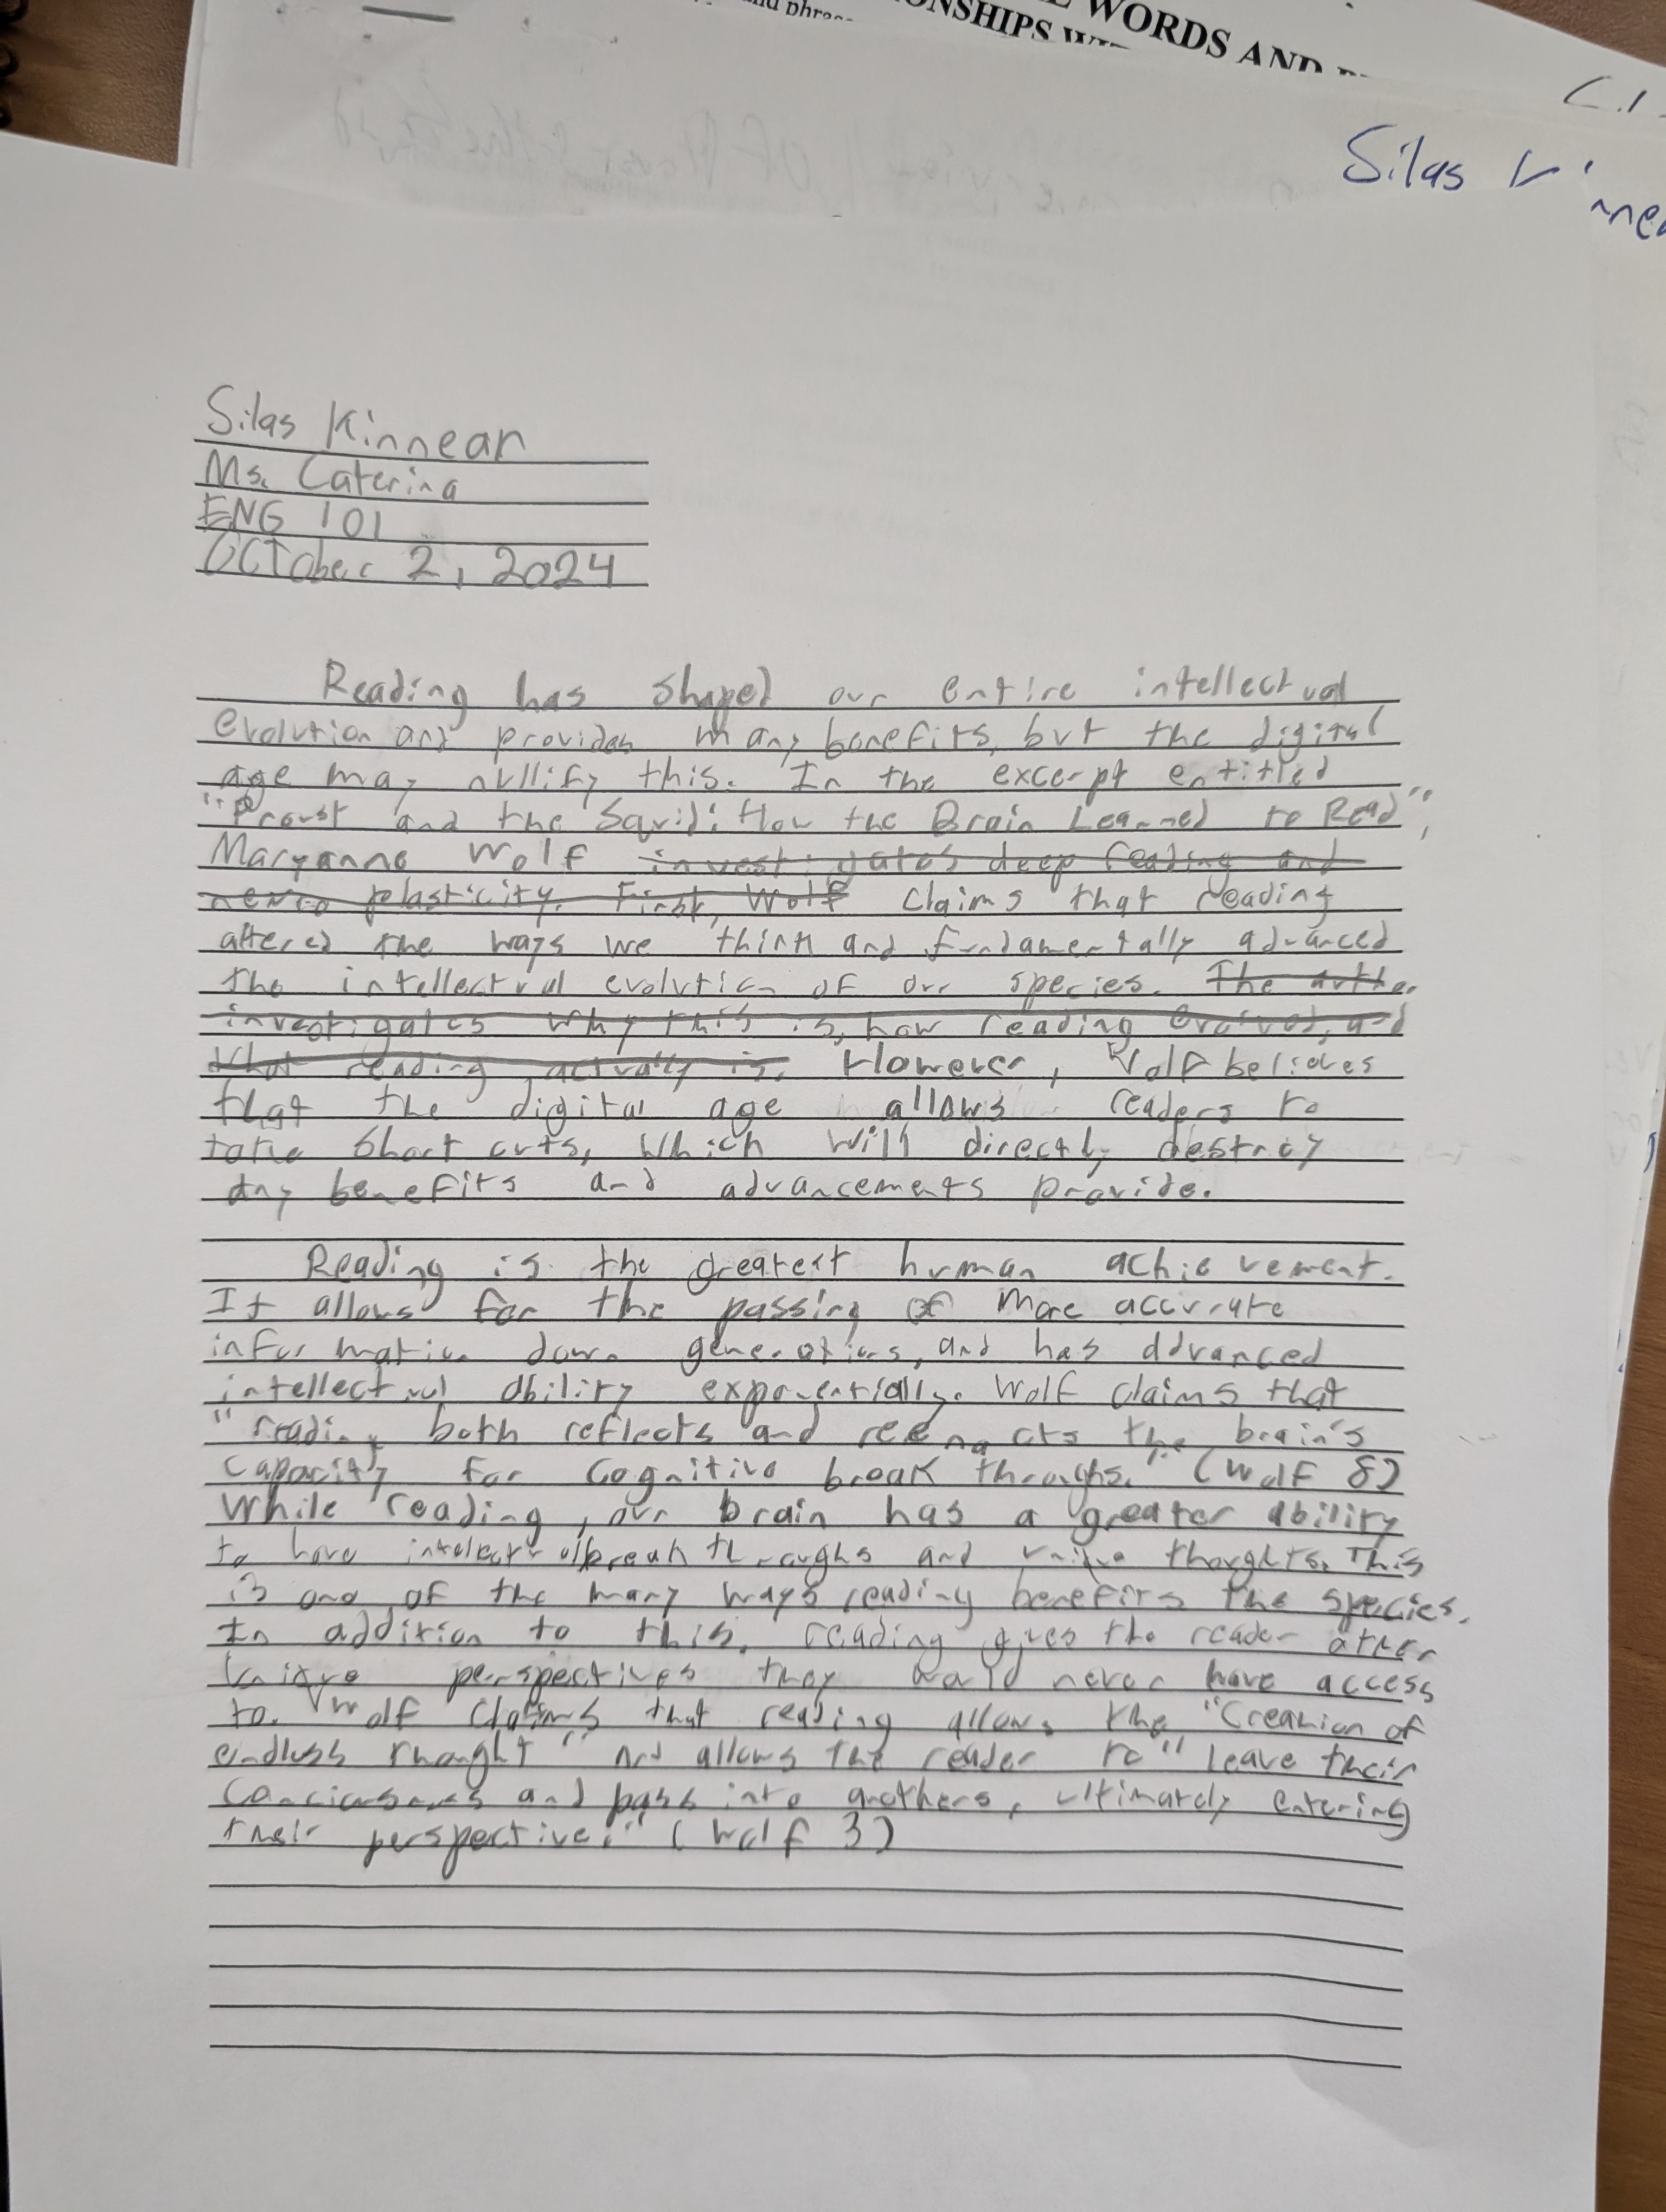 WORDS AND
Silas
Silas Kinnear
Ms. Caterina
ENG 101
October 2, 2024
Reading has shaped our entire intellectual
evolution and provides many benefits, but the digital
age may nullify this. In the excerpt entitled
"Proust and the Squid: How the Brain Learned to Read",
Maryanne Wolf investigates deep reading and
plasticity. First, Wolf claims that reading
altered the ways we think and fundamentally advanced
the intellectual evolution of our species. The author
investigates why this is, how reading evolved, and
what reading actually is. However, Wolf believes
that the digital age allows readers to
take short cuts, which will directly destroy
any benefits and advancements provide.
Reading is the greatest human achievement.
It allows for the passing of more accurate
information down generations, and has advanced
intellectual ability exponentially. Wolf claims that
"reading both reflects and reenacts the brain's
capacity for cognitive break throughs." (Wolf 8)
While reading, our brain has a greater ability
to have intelectual break throughs and unique thoughts. This
is one of the many ways reading benefits the species.
In addition to this, reading gives the reader other
unique perspectives they would never have access
to. Wolf claims that reading allows the "Creation of
endless thought" and allows the reader to "leave their
conciousness and pass into anothers, ultimately entering
their perspective." (Wolf 3)